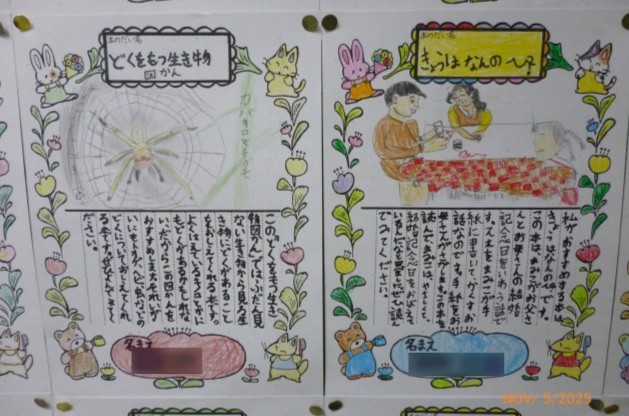 本のだい名
どくをもつ生き物
図かん
カバキコマチグモ
この「どくをもつ生き
物図かん」では、ふだん見
ない生き物から見る生
き物にどくがあること
をおしえてくれる本です。
よく
もどくがあるかもしれな
い、だからこの図かんを
おすすめします。それいが
いにも ヘビ、などの
どくについておしえてくれ
る本です。ぜひよんでみてく
ださい。
名まえ
本のだい名
きょうはなんの
私がおすすめする本は、
きょうはなんの
この本は、まみこがお父さ
んとお母さんの結婚
記念日をいわう話で
す。 まみこが手
紙に書いてかくすお
話なのです。手紙をお
母さんがさがす この本を
読んでみると、
結婚記念日をおぼえて
いるんだなと ぜひ読ん
でみてください。
名まえ
NOV/ 5/2025